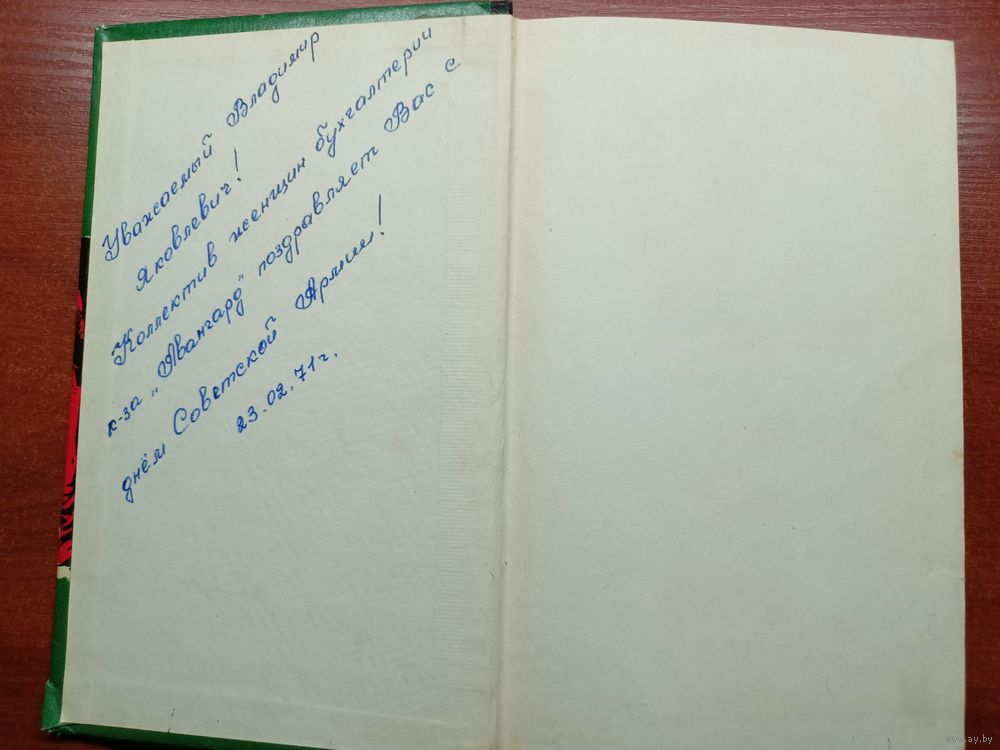 Уважаемый Владимир
Яковлевич!
Коллектив женщин бухгалтерии
к-за „Авангард" поздравляет Вас с
днём Советской Армии!
23.02.71г.
www.ay.by